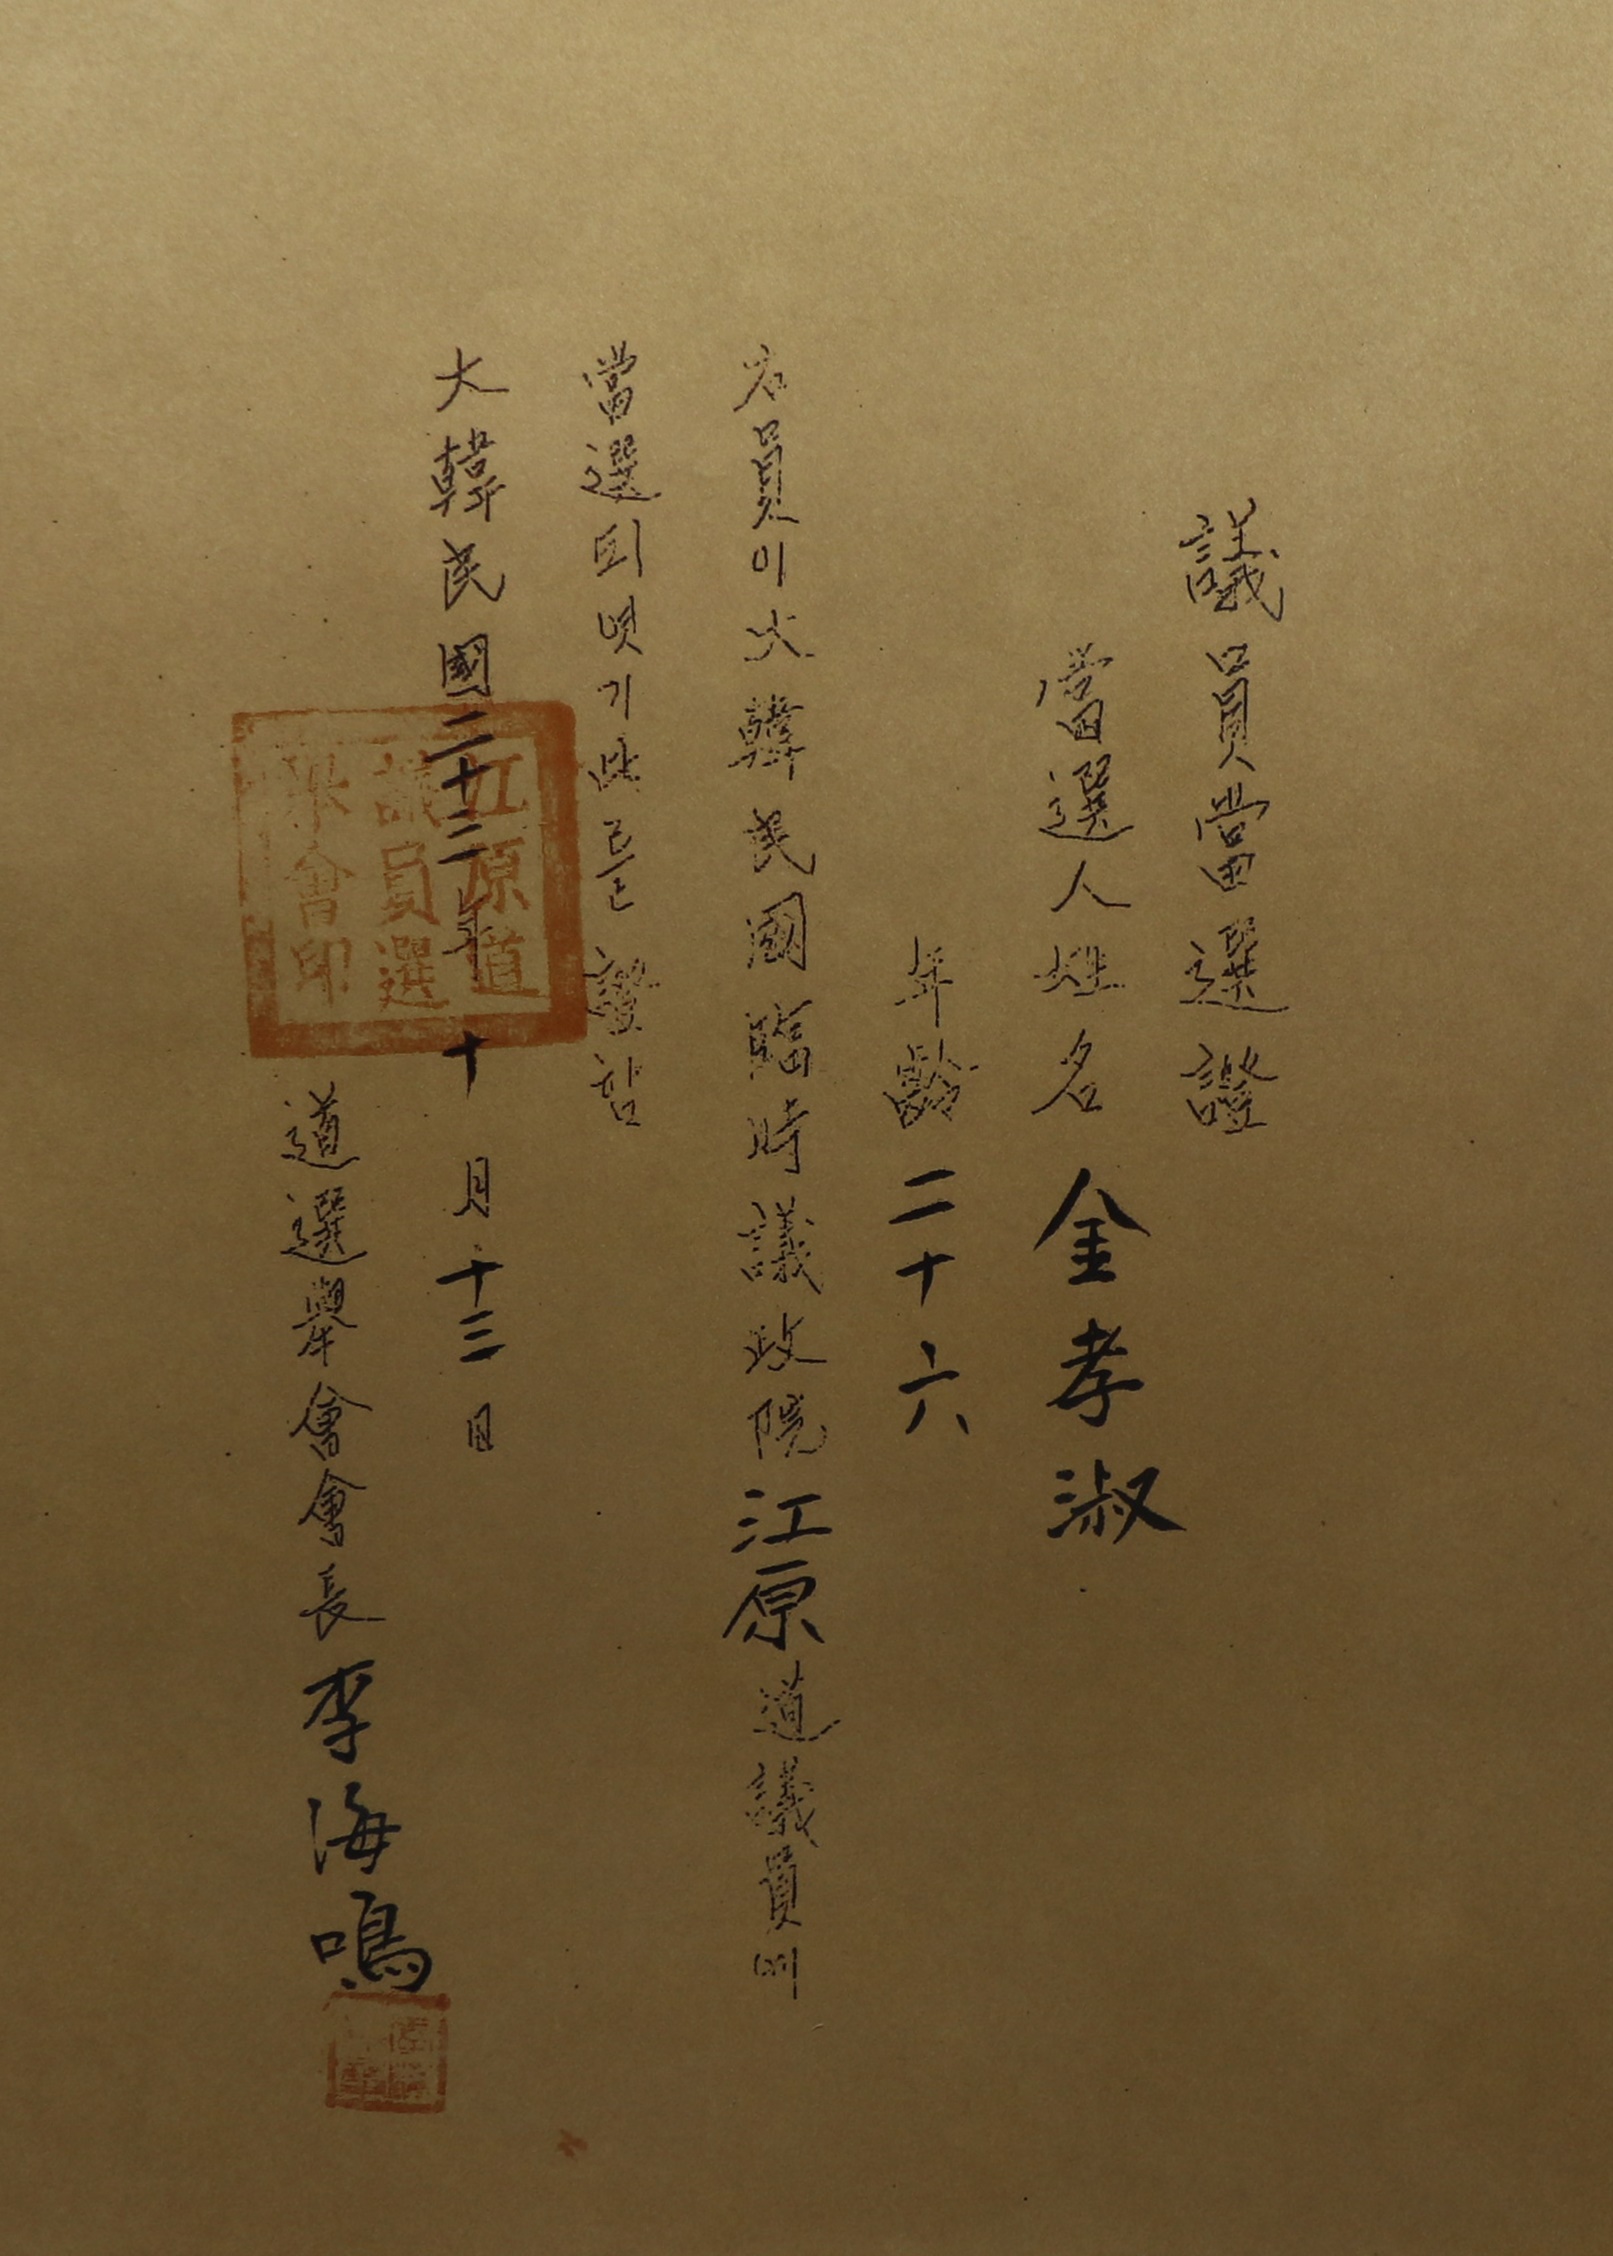 議員當選證
當選人姓名 金孝淑
年齡 二十六
右員이大韓民國臨時議政院江原道議員에
當選되엿기此를證함
大韓民國二十三年 十月十三日
道選舉會會長 李海鳴
江原道
議員選
舉會印